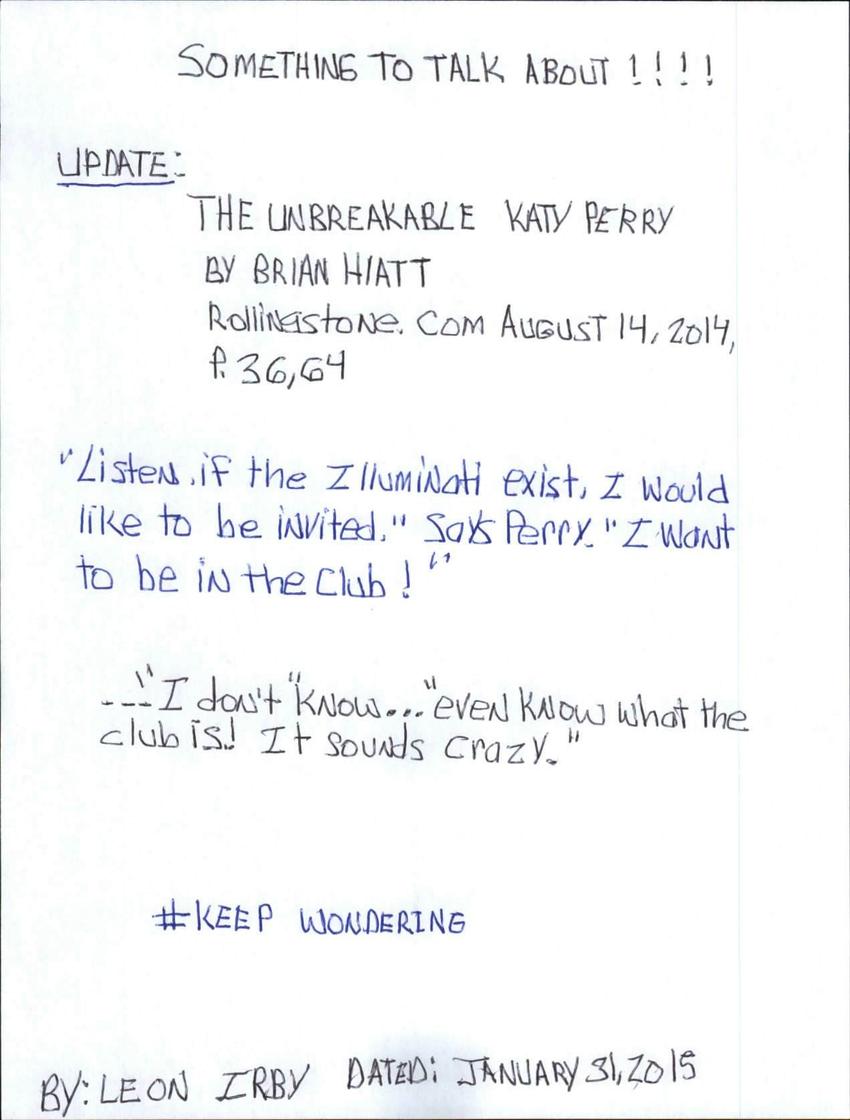 SOMETHING TO TALK ABOUT !!!!
UPDATE:
THE UNBREAKABLE KATY PERRY
BY BRIAN HIATT
Rollingstone. Com AUGUST 14, 2014,
P. 36,64
"Listen, if the Illuminati exist, I would
like to be invited." Says Perry. "I Want
to be in the Club!"
---"I don't "know..."even know what the
club is! It sounds crazy."
#KEEP WONDERING
BY: LEON IRBY DATED: JANUARY 31, 2015